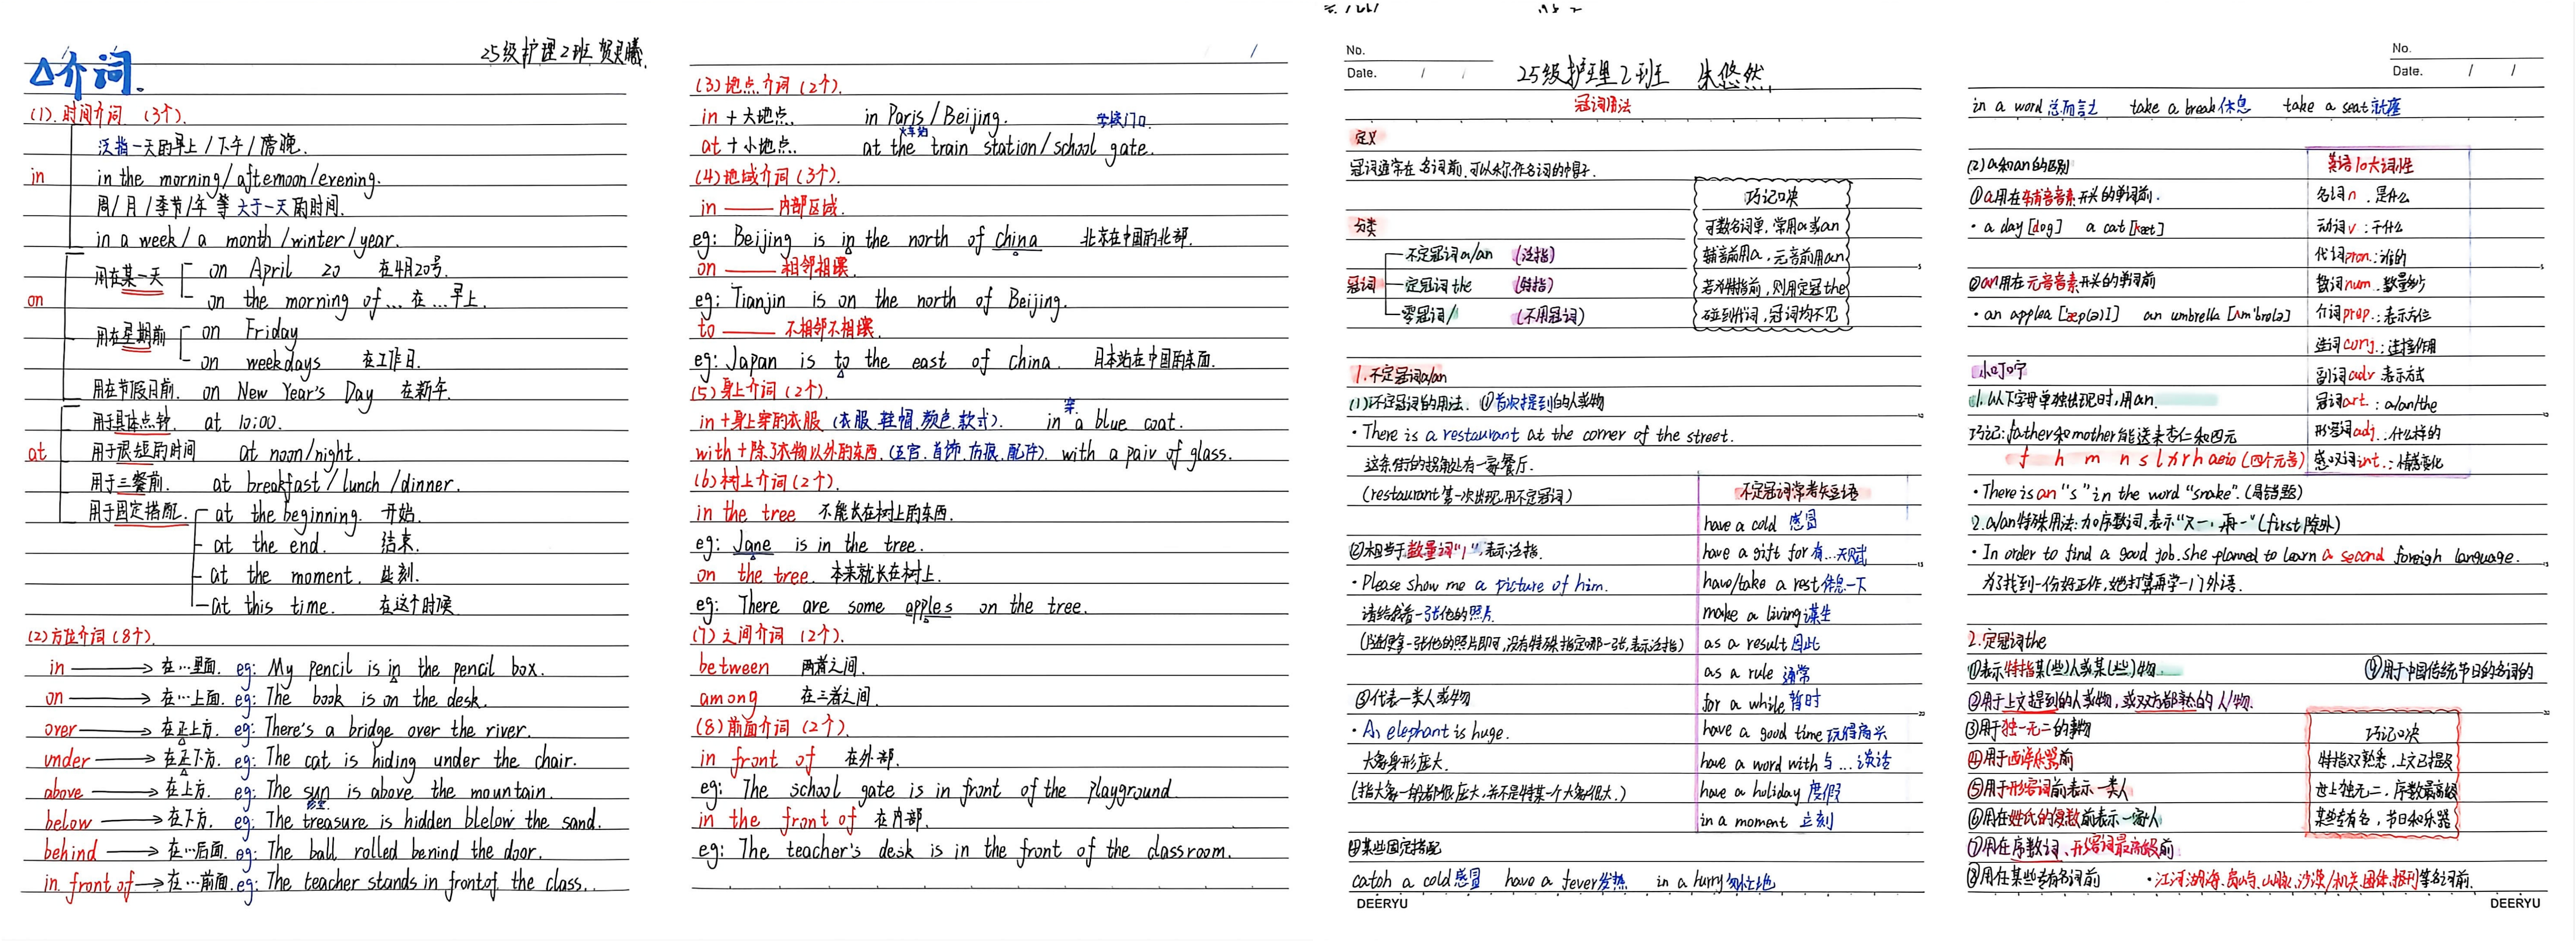 25级护理2班 贺灵曦.
△介词.
(1). 时间介词 (3个).
泛指一天的早上/下午/傍晚.
in
in the morning/aftemoon/evening.
周/月/季节/年等大于一天的时间.
in a week/a month/winter/year.
用在某一天
on April 20 在4月20号.
on the morning of... 在...早上.
on
用在星期前
on Friday
on weekdays 在工作日.
用在节假日前. on New Year's Day 在新年.
用于具体点钟. at 10:00.
用于很短的时间 at noon/night.
at
用于三餐前. at breakfast/lunch/dinner.
用于固定搭配.
at the beginning. 开始.
at the end. 结束.
at the moment. 此刻.
at this time. 在这个时候.
(2)方位介词(8个).
in → 在…里面. eg: My pencil is in the pencil box.
on → 在…上面. eg: The book is on the desk.
over → 在正上方. eg: There's a bridge over the river.
under → 在正下方. eg: The cat is hiding under the chair.
above → 在上方. eg: The sun is above the mountain.
below → 在下方. eg: The treasure is hidden blelow the sand.
behind → 在…后面. eg: The ball rolled benind the door.
in front of → 在…前面. eg: The teacher stands in frontof the class.
(3)地点介词(2个).
in + 大地点. in Paris/Beijing. 学校门口
火车站
at + 小地点. at the train station/school gate.
(4)地域介词(3个).
in —— 内部区域.
eg: Beijing is in the north of china 北京在中国的北部.
on —— 相邻相壤.
eg: Tianjin is on the north of Beijing.
to —— 不相邻不相壤.
eg: Japan is to the east of china. 日本站在中国的东面.
(5)身上介词(2个).
穿
in+身上穿的衣服 (衣服.鞋帽.颜色.款式). in a blue coat.
with+除了衣物以外的东西.(五官.首饰.伤痕.配件). with a pair of glass.
(6)树上介词(2个).
in the tree 不能长在树上的东西.
eg: Jane is in the tree.
on the tree. 本来就长在树上.
eg: There are some apples on the tree.
(7)之间介词 (2个).
between 两者之间.
among 在三者之间.
(8)前面介词(2个).
in front of 在外部.
eg: The school gate is in front of the playground.
in the front of 在内部.
eg: The teacher's desk is in the front of the classroom.
No.
Date. / /
25级护理2班 朱悠然.
冠词用法
定义
冠词通常在名词前,可以称作名词的帽子.
分类
冠词
不定冠词a/an (泛指)
定冠词the (特指)
零冠词/ (不用冠词)
巧记口决
可数名词单,常用a或an
辅音前用a,元音前用an
若为特指前,则用定冠the
碰到代词,冠词均不见
1.不定冠词a/an
(1)不定冠词的用法. ①首次提到的人或物
·There is a restaurant at the corner of the street.
这条街的拐角处有一家餐厅.
(restaurant第一次出现,用不定冠词)
②相当于数量词"1",表示泛指.
·Please show me a picture of him.
请给我看一张他的照片.
(随便拿一张他的照片即可,没有特殊指定哪一张,表示泛指)
③代表一类人或物
·An elephant is huge.
大象身形庞大.
(指大象一般都很庞大,并不是特某一个大象很大.)
④某些固定搭配
catch a cold感冒 have a fever发热 in a hurry匆忙地
不定冠词常考短语
have a cold 感冒
have a gift for 有…天赋
have/take a rest 休息一下
make a living 谋生
as a result 因此
as a rule 通常
for a while 暂时
have a good time 玩得高兴
have a word with 与…谈话
have a holiday 度假
in a moment 立刻
DEERYU
No.
Date. / /
in a word 总而言之 take a break 休息 take a seat 就座
(2)a和an的区别
①a用在辅音音素开头的单词前.
·a day [dog] a cat [kæt]
②an用在元音音素开头的单词前
·an applea ['æp(ə)l] an umbrella [ʌm'brelə]
小叮咛
1.以下字母单独出现时,用an.
巧记:father和mother能送来杏仁和四元
f h m n s l x r h aeio (四个元音)
·There is an "s" in the word "snake". (易错题)
2.a/an特殊用法:加序数词.表示"又一,再一"(first除外)
·In order to find a good job.she planned to learn a second foreigh language.
为了找到一份好工作,她打算再学一门外语.
英语10大词性
名词n.是什么
动词v.:干什么
代词pron.:谁的
数词num.数量多少
介词prep.:表示方位
连词conj.:连接作用
副词adv 表示方式
冠词art.:a/an/the
形容词adj.:什么样的
感叹词int.:情感变化
2.定冠词the
①表示特指某(些)人或某(些)物.
⑨用于中国传统节日的名词的
②用于上文提到的人或物,或双方都熟的人/物.
③用于独一无二的事物
④用于西洋乐器前
⑤用于形容词前表示一类人
⑥用在姓氏的复数前表示一家人
⑦用在序数词、形容词最高级前
⑧用在某些专有名词前 ·江河湖海、岛屿、山脉、沙漠/机关、团体、报刊等名词前.
巧记口决
特指双熟悉,上文已提及
世上独无二,序数最高级
某些专有名,节日和乐器
DEERYU